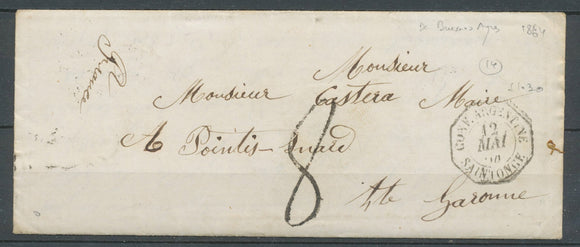 de Buenos Ayres 1864
France
14
Monsieur
Monsieur Castera Maire
A Pointis-Inard
8
Hte Garonne
CONF. ARGENTINE
12
MAI
SAINTONGE